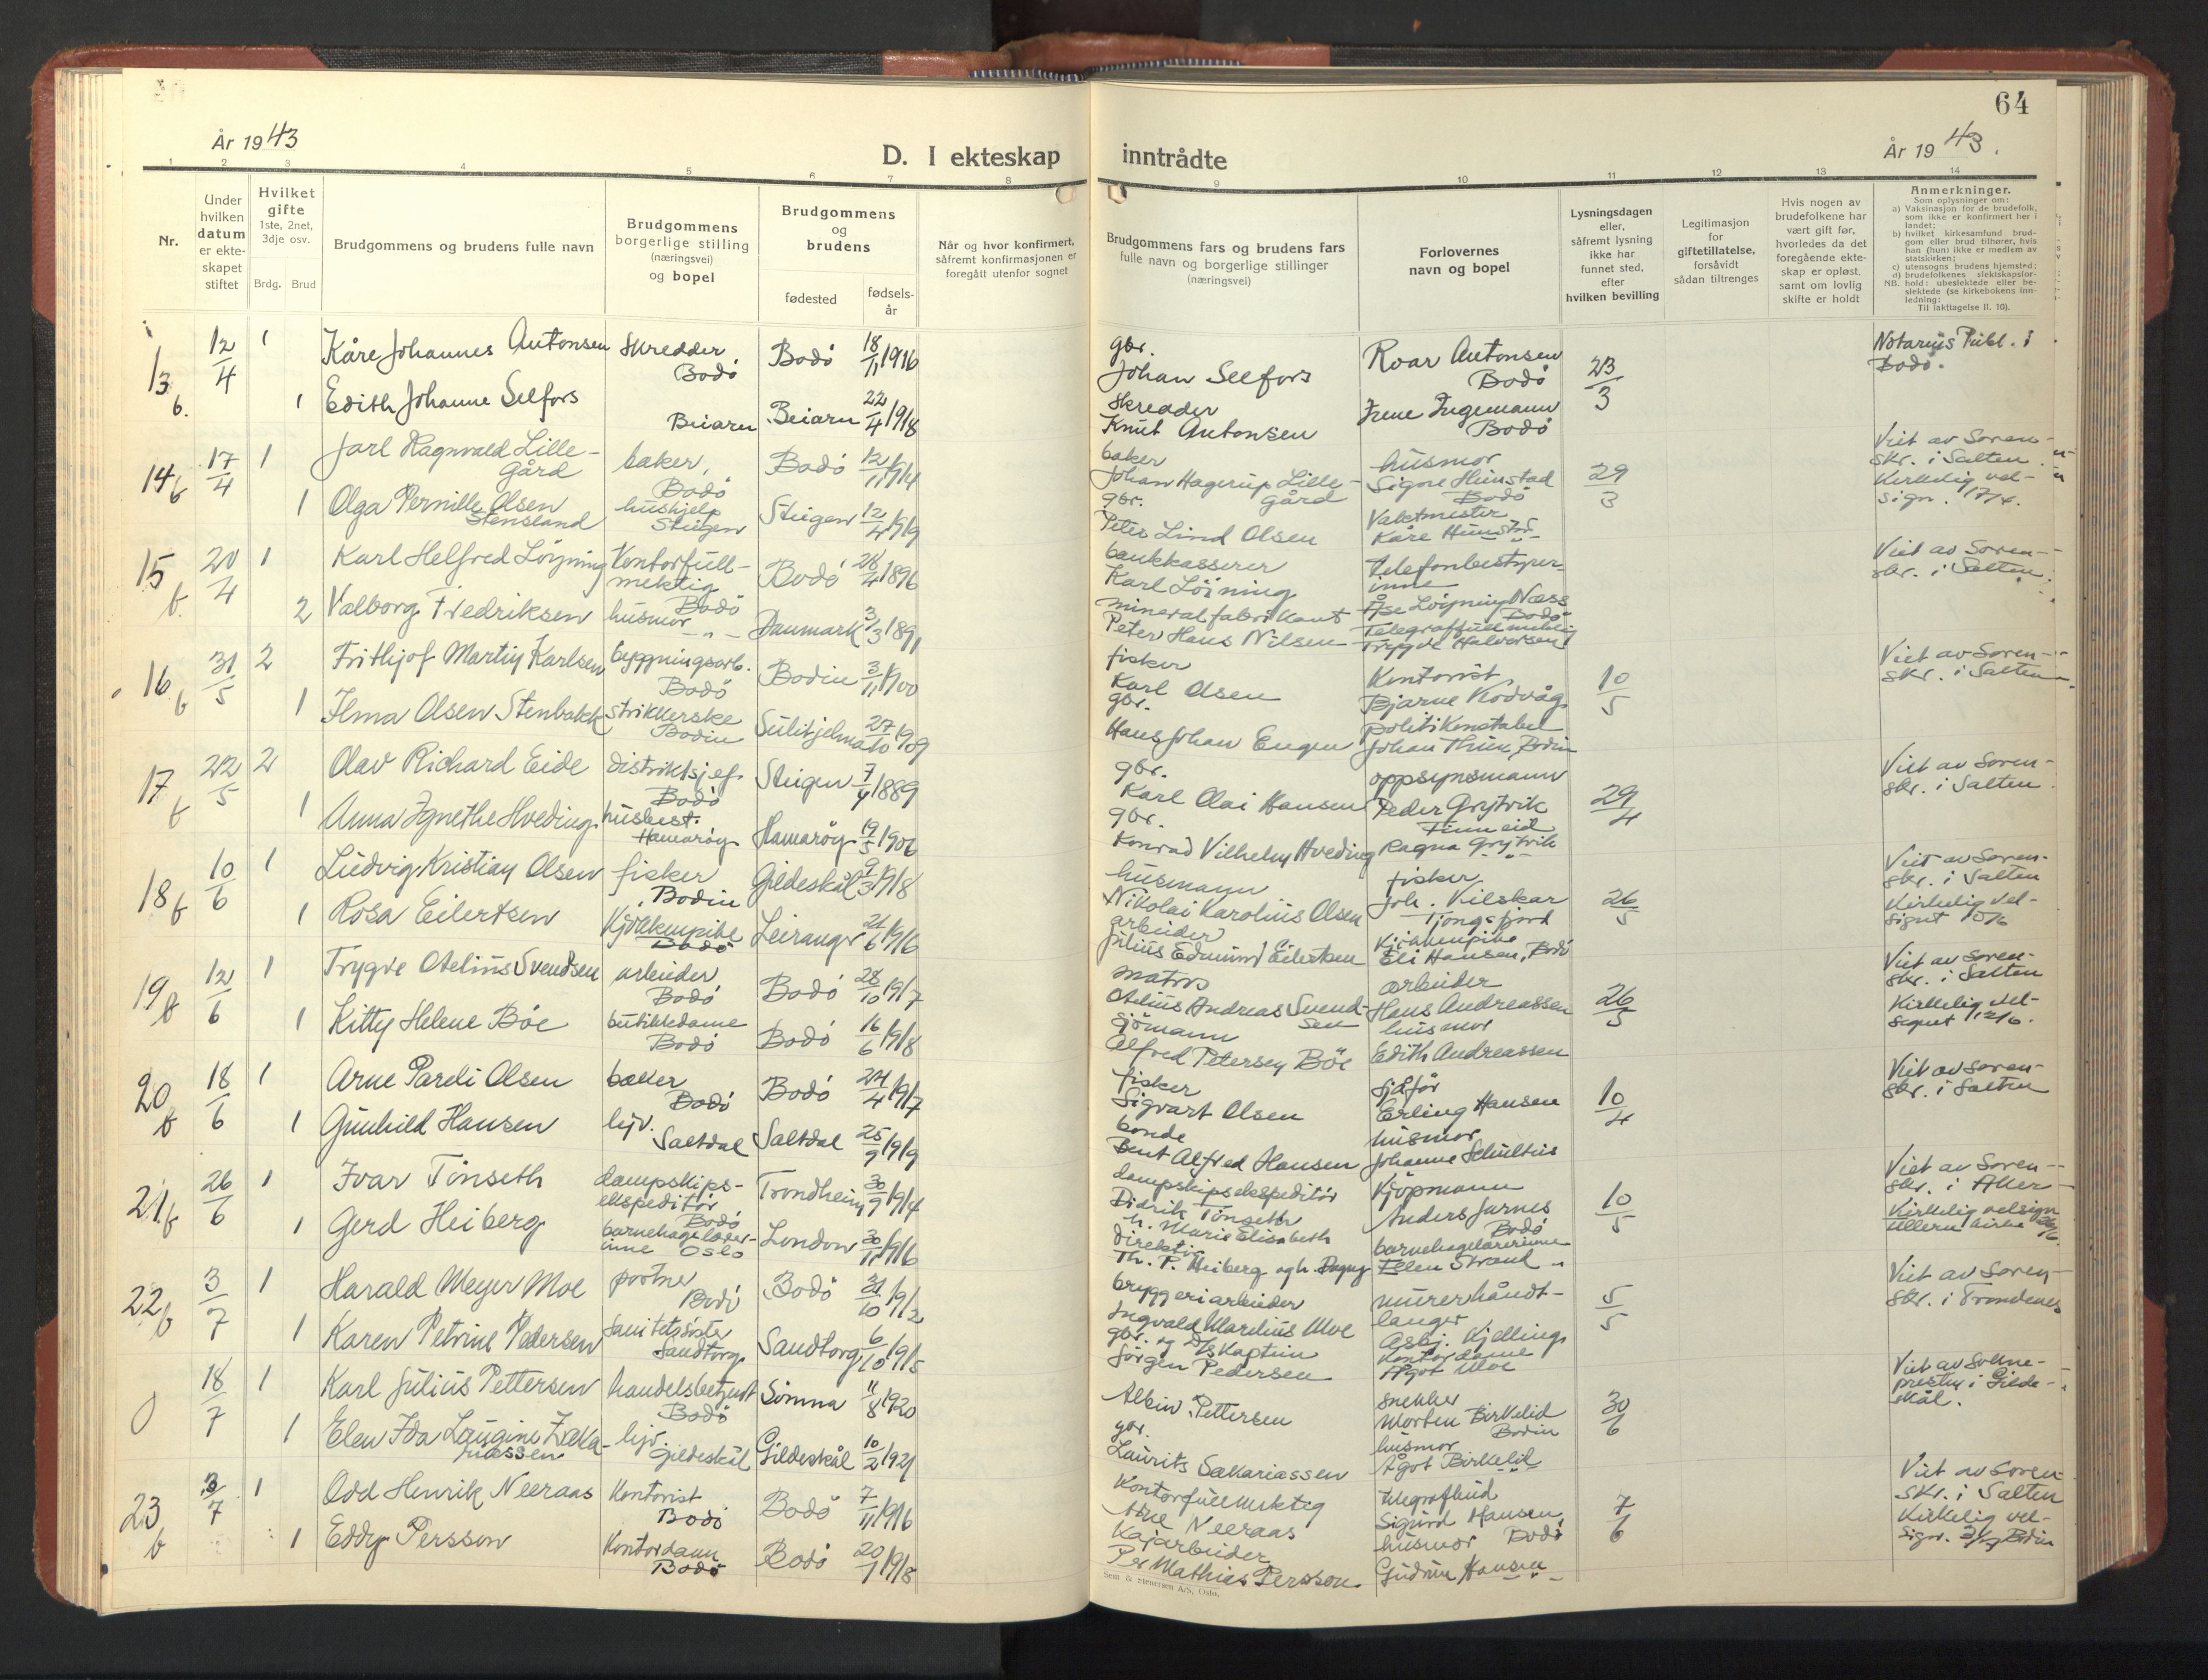 64
År 1943
D. I ekteskap inntrådte
År 1943.
1 2 3 4 5 6 7 8 9 10 11 12 13 14
Nr.
Under hvilken datum er ekteskapet stiftet
Hvilket gifte 1ste, 2net, 3dje osv.
Brdg. Brud
Brudgommens og brudens fulle navn
Brudgommens borgerlige stilling (næringsvei) og bopel
Brudgommens og brudens
fødested
fødselsår
Når og hvor konfirmert, såfremt konfirmasjonen er foregått utenfor sognet
Brudgommens fars og brudens fars fulle navn og borgerlige stillinger (næringsvei)
Forlovernes navn og bopel
Lysningsdagen eller, såfremt lysning ikke har funnet sted, efter hvilken bevilling
Legitimasjon for giftetillatelse, forsåvidt sådan tiltrenges
Hvis nogen av brudefolkene har vært gift før, hvorledes da det foregående ekteskap er opløst, samt om lovlig skifte er holdt
Anmerkninger.
Som oplysninger om:
a) Vaksinasjon for de brudefolk, som ikke er konfirmert her i landet;
b) hvilket kirkesamfund brudgom eller brud tilhører, hvis han (hun) ikke er medlem av statskirken;
c) utensogns brudens hjemsted;
d) brudefolkenes slektskapsforhold: ubeslektede eller beslektede (se kirkebokens innledning:
NB. Til iakttagelse II. 10).
13 b. 12/4 1 Kåre Johannes Antonsen Skredder Bodø Bodø 18/11 1916 gbr. Johan Selfors Roar Antonsen Bodø 23/3 Notarius Publ. i Bodø.
1 Edith Johanne Selfors Beiarn Beiarn 22/4 1918 skredder Knut Antonsen Irene Ingemann Bodø
14 b 17/4 1 Jarl Ragnvald Lillegård baker, Bodø Bodø 12/11 1914 baker Johan Hagerup Lillegård husmor Signe Hunstad Bodø 29/3 Viet av Sorenskr. i Salten Kirkelig velsign. 17/4.
1 Olga Pernille Olsen Stensland hushjelp Steigen Steigen 12/4 1919 gbr. Peter Lind Olsen Vaktmester Kåre Hunstad
15 b. 20/4 1 Karl Helfred Löyning Kontorfullmektig Bodø Bodø 28/4 1896 bankkasserer Karl Löining telefonbestyrerinne Åse Löyning Næss Bodø Viet av Sorenskr. i Salten.
2 Valborg Fredriksen husmor -"- Danmark 3/3 1891 mineralfabrikant Peter Hans Nilsen Telegraffullmektig Trygve Halvorsen
16 b 31/5 2 Frithjof Martin Karlsen bygningsarb. Bodø Bodin 3/11 1900 fisker Karl Olsen Kontorist, Bjarne Kodvåg 10/5 Viet av Sorenskr. i Salten
1 Ilma Olsen Stenbakk strikkerske Bodin Sulitjelma 27/10 1909 gbr. Hans Johan Eugen politikonstabel Johan Thun, Bodin
17 b 22/5 2 Olav Richard Eide distriktsjef. Bodø Steigen 7/4 1889 gbr. Karl Olai Hansen oppsynsmann Peder Grytvik Finneid 29/4 Viet av Sorenskr. i Salten
1 Anna Agnethe Hveding husbest. Hamarøy Hamarøy 19/5 1906 gbr. Konrad Vilhelm Hveding Ragna Grytvik -"-
18 b 10/6 1 Ludvig Kristian Olsen fisker, Bodin Gildeskål 9/3 1918 husmann Nikolai Karolius Olsen fisker Joh. Vilskar Tjongsfjord 26/5 Viet av Sorenskr. i Salten Kirkelig velsignet 10/6
1 Rosa Eilertsen Kjøkkenpike Bodø Leiranger 21/6 1916 arbeider Julius Edmund Eilertsen Kjøkkenpike Eli Hansen, Bodø
19 b 12/6 1 Trygve Otelius Svendsen arbeider Bodø Bodø 28/10 1917 matros Otelius Andreas Svendsen arbeider Hans Andreassen 26/5 Viet av Sorenskr. i Salten Kirkelig velsignet 12/6.
1 Kitty Helene Böe butikkdame Bodø Bodø 16/6 1918 sjömann Alfred Petersen Böe husmor Edith Andreassen
20 b 18/6 1 Arne Pardi Olsen baker Bodø Bodø 24/4 1917 fisker Sigvart Olsen sjåför Erling Hansen 10/4 Viet av Sorenskr. i Salten
1 Gunhild Hansen hjv. Saltdal Saltdal 25/9 1919 bonde Bent Alfred Hansen husmor Johanne Schultius
21 b 26/6 1 Ivar Tönseth dampskipsekspeditör Bodø Trondheim 30/9 1914 dampskipsekspeditör Didrik Tönseth h. Marie Elisabeth Kjöpmann Anders Jarnes Bodø 10/5 Viet av Sorenskr. i Aker Kirkelig velsign Ullern kirke 26/6.
1 Gerd Heiberg barnehagelærerinne Oslo London 30/11 1916 direktör Th. P. Heiberg og h. Dagny barnehagelærerinne Ellen Strand "
22 b 3/7 1 Harald Meyer Moe portner Bodø Bodø 31/10 1912 bryggeriarbeider Ingvald Marelius Moe murerhåndtlanger Asbj. Kjelling 5/5 Viet av Sorenskr. i Trondenes
1 Karen Petrine Pedersen Sanitetssöster Sandtorg Sandtorg 6/10 1915 gbr. og D/S kaptein Jörgen Pedersen Kontordame Ågot Moe
0 18/7 1 Karl Julius Pettersen handelsbetjent Bodø Sömna 11/8 1920 Albin Pettersen snekker Morten Birkelid Bodin 30/6 Viet av Sokneprestn i Gildeskål.
1 Elen Ida Laugine Zakariassen hjv. Gildeskål Gildeskål 10/2 1921 gbr. Laurits Sakariassen husmor Ågot Birkelid
23 b 3/7 1 Odd Henrik Neeraas Kontorist Bodø Bodø 7/11 1916 Kontorfullmektig Neeraas telegrafbud Sigurd Hansen, Bodø 7/6 Viet av Sorenskr. i Salten Kirkelig velsign. 3/7 Bodin
1 Eddy Persson Kontordame Bodø Bodø 20/1 1918 Kajarbeider Per Mathias Persson. husmor Gudrun Hansen -"-
Sem & Stenersen A/S, Oslo.